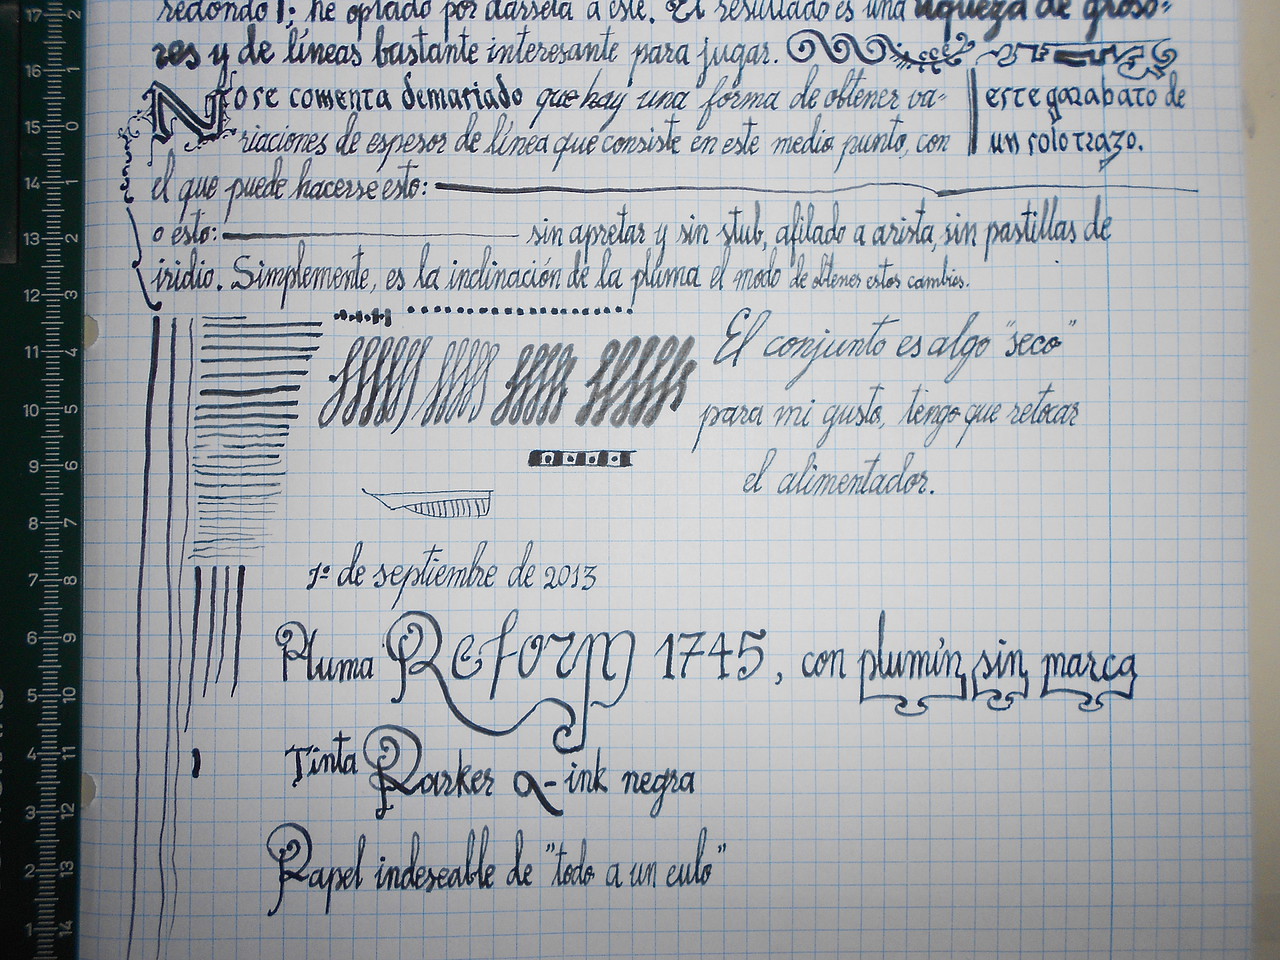 redondo!; he optado por dárselo a éste. El resultado es una riqueza de groso-
res y de líneas bastante interesante para jugar.
No se comenta demasiado que hay una forma de obtener va-
riaciones de espesor de línea que consiste en este medio punto, con
este garabato de
un solo trazo.
el que puede hacerse esto:
o esto: sin apretar y sin stub, afilado a arista, sin pastillas de
iridio. Simplemente, es la inclinación de la pluma el modo de obtener estos cambios.
El conjunto es algo "seco"
para mi gusto, tengo que retocar
el alimentador.
1º de septiembre de 2013
Pluma Reform 1745, con plumín sin marca
Tinta Parker Q-ink negra
Papel indeseable de "todo a un culo"
17 16 15 14 13 12 11 10 9 8 7 6 5 4 3 2 1
2 1 0 1 2 3 4 5 6 7 8 9 10 11 12 13 14